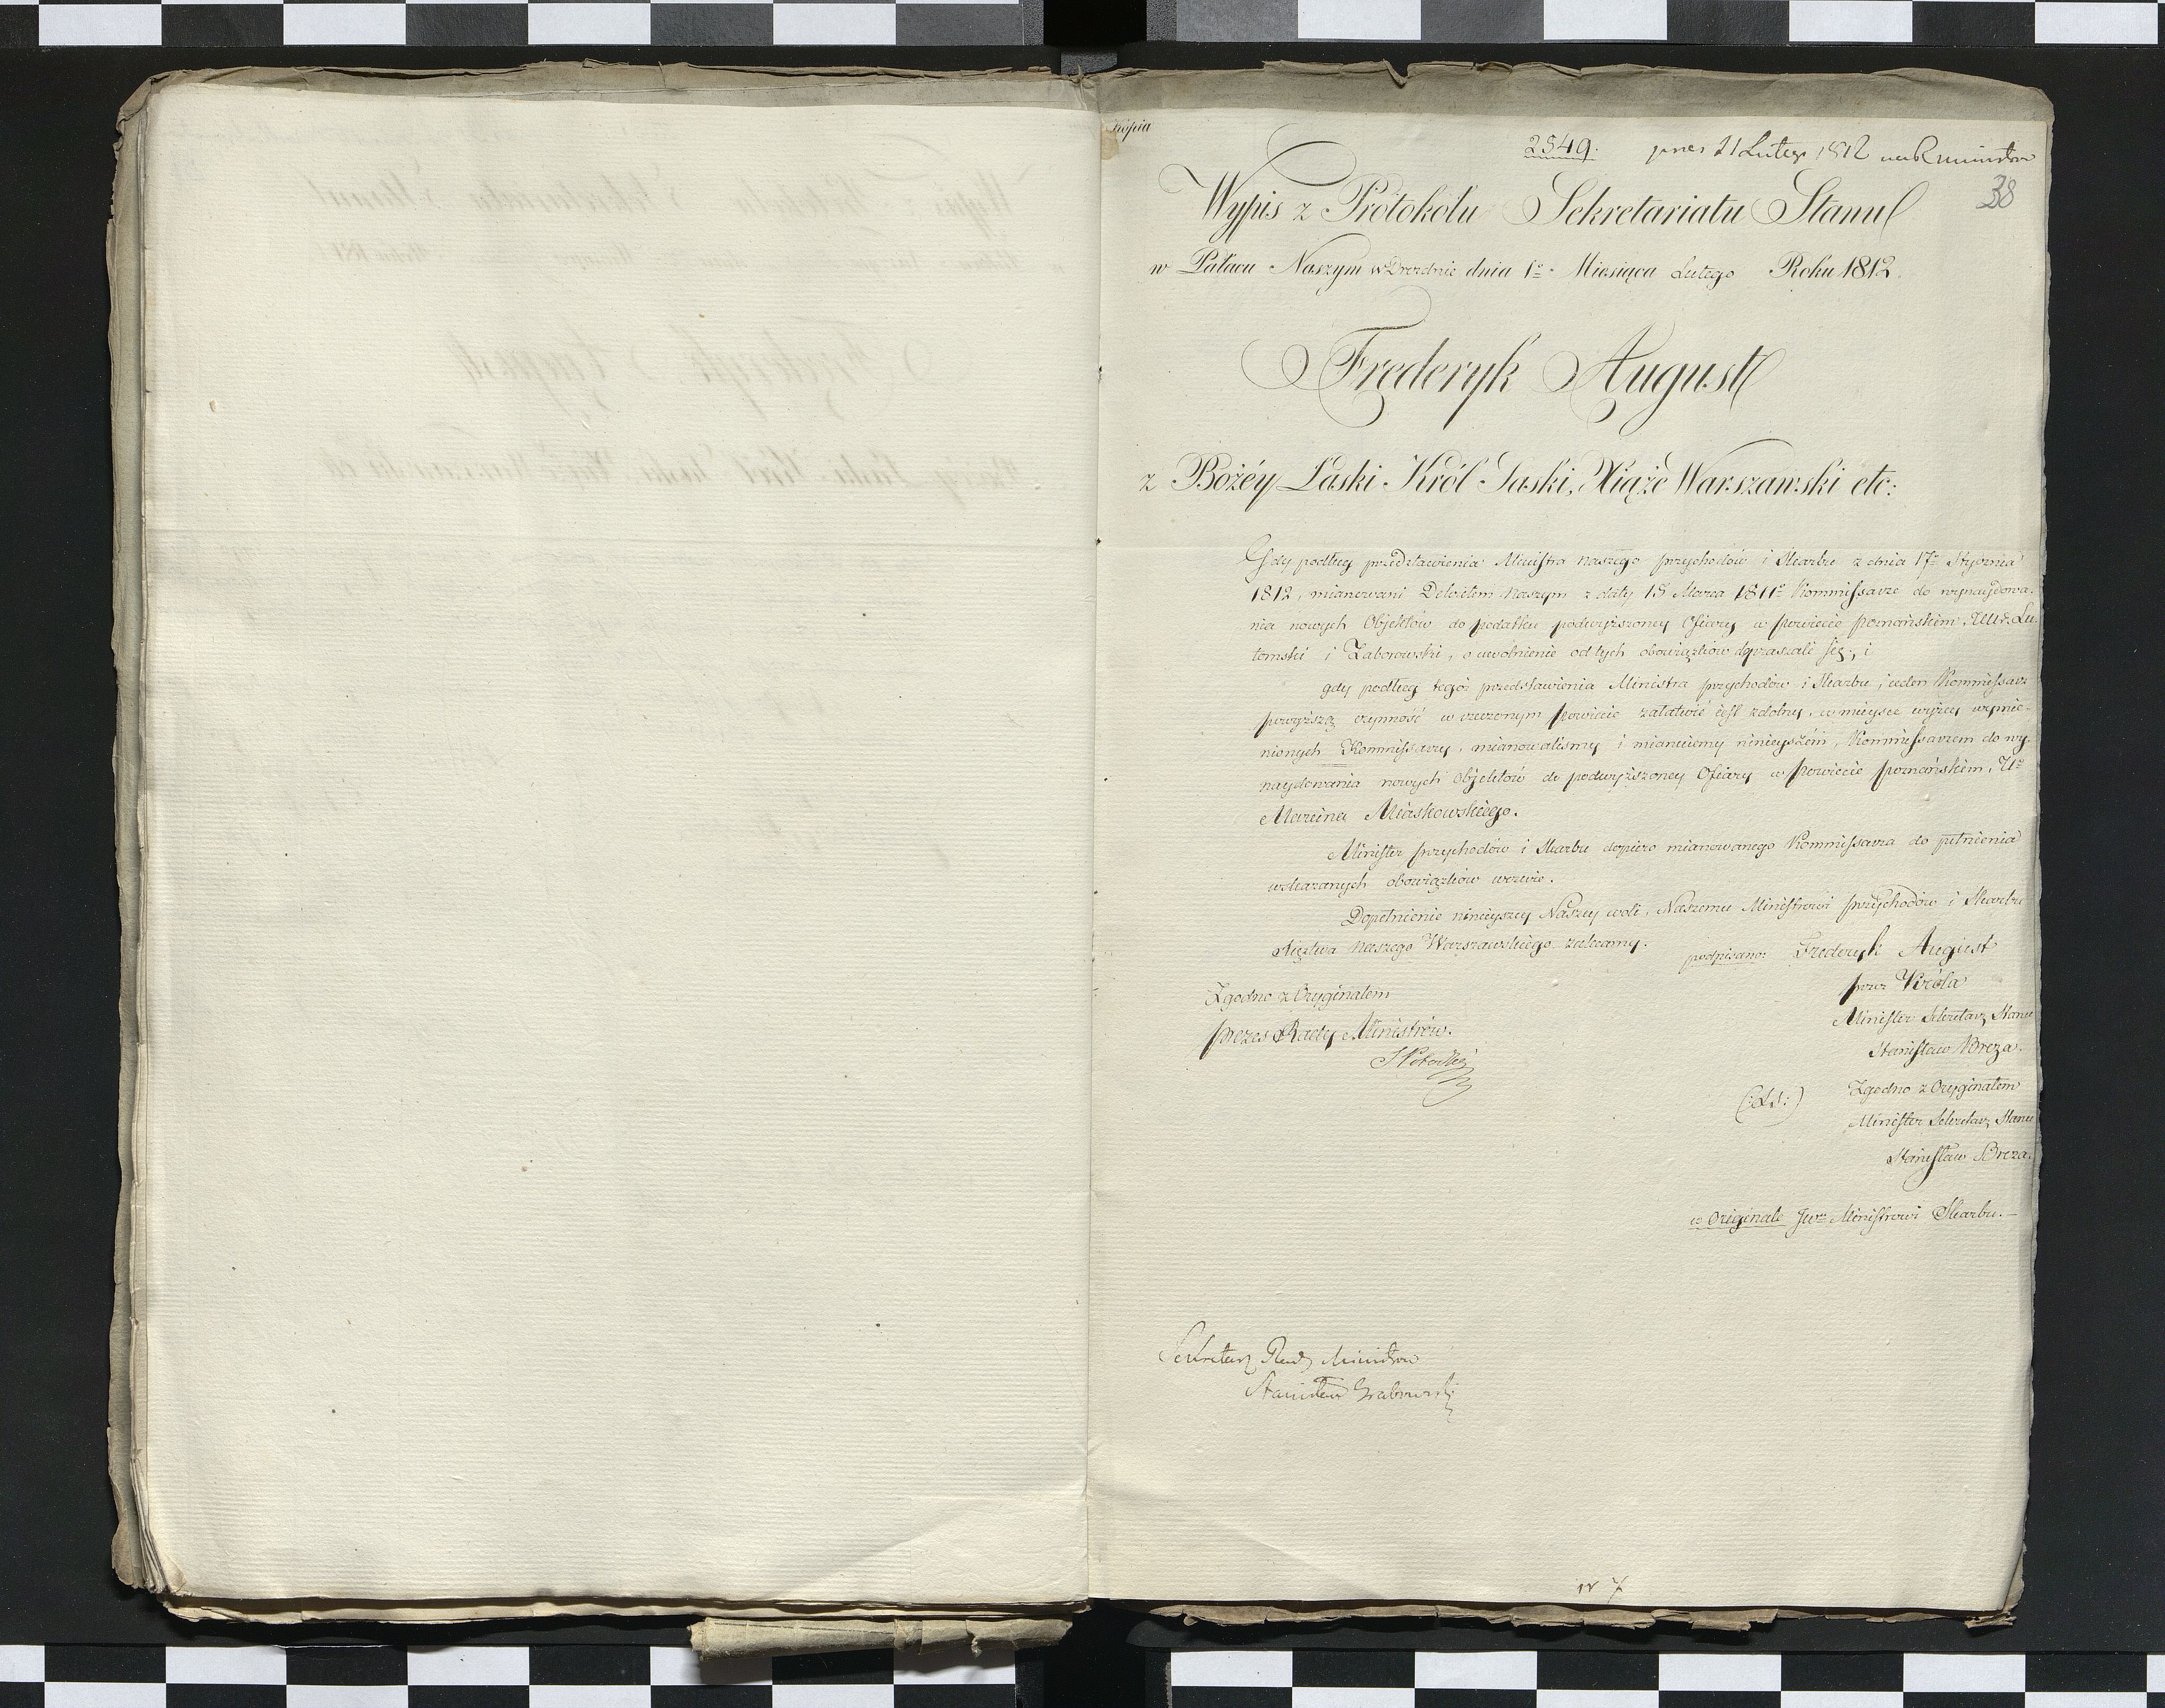 Kopia
2549. pres 21 Lutego 1812 na R ministrow
38
Wypis z Protokółu Sekretariatu Stanu
w Pałacu Naszym w Dreznie dnia 1o Miesiąca Lutego Roku 1812.
Frederyk August
z Bożéy Łaski Król Saski, Xiąże Warszawski etc:
Gdy podług przedstawienia Ministra naszego przychodów i Skarbu z dnia 17o Stycznia
1812, mianowani Dekretem naszym z daty 15 Marca 1811o Kommissarze do wynaydowa-
nia nowych Objektów do podatku podwyższoney Ofiary w powiecie poznańskim, Ur. Lu-
tomski i Zaborowski, o uwolnienie od tych obowiązków dopraszali się; i
gdy podług tegoż przedstawienia Ministra przychodów i Skarbu, ieden Kommissarz
powyższą czynność w rzeczonym powiecie załatwić iest zdolny, w mieysce wyżey wymie-
nionych Kommissarzy, mianowaliśmy i mianuiemy ninieyszém, Kommissarzem do wy-
naydowania nowych Objektów do podwyższoney Ofiary w powiecie poznańskim, Uo
Marcina Miaskowskiego.
Minister przychodów i Skarbu dopiero mianowanego Kommissarza do pełnienia
wskazanych obowiązków wezwie.
Dopełnienie ninieyszey Naszey woli, Naszemu Ministrowi przychodów i Skarbu
Xięztwa Naszego Warszawskiego zalecamy.
podpisano: Frederyk August
przez Króla
Minister Sekretarz Stanu
Stanisław Breza.
Zgodno z Oryginałem
Prezes Rady Ministrów.
S Potocki
(:LS:)
Zgodno z Oryginałem
Minister Sekretarz Stanu
Stanisław Breza.
w Originale Jwu Ministrowi Skarbu.—
Sekretarz Rady Ministrow
Stanisław Grabowski
N 7